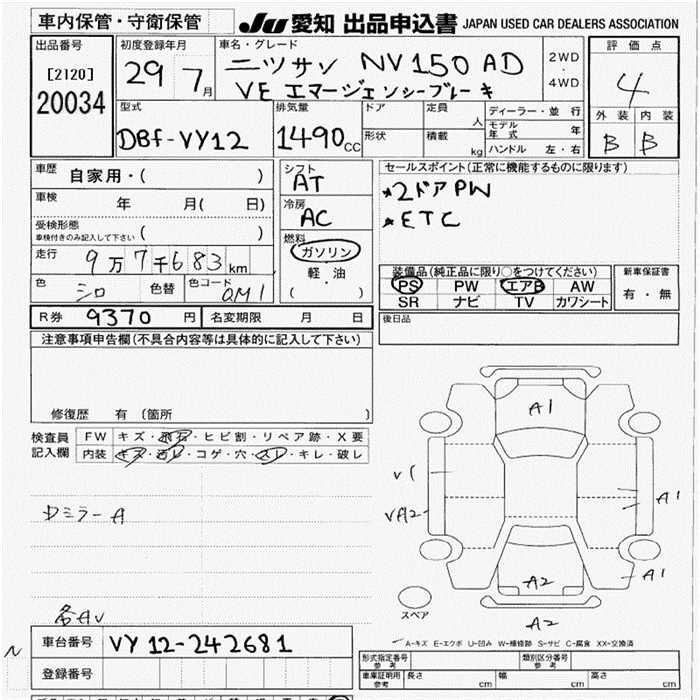 車内保管・守衛保管
JU 愛知 出品申込書 JAPAN USED CAR DEALERS ASSOCIATION
出品番号 [2120] 20034
初度登録年月 29 7月
車名・グレード ニッサン NV150 AD
VE エマージェンシーブレーキ
2WD・4WD
評価点 4
外装 B 内装 B
型式 DBF-VY12
排気量 1490cc
ドア 形状
定員 人
積載 kg
ディーラー・並行
モデル年式 年
ハンドル 左・右
車歴 自家用・( )
車検 年 月( 日)
受検形態 ( )
車検付きのみ記入して下さい
走行 9万7千683km
色 シロ 色替 色コード QM1
シフト AT
冷房 AC
燃料 ガソリン
軽・油
( )
セールスポイント(正常に機能するものに限ります)
*2ドアPW
*ETC
装備品(純正品に限り○をつけてください)
PS PW エアB AW
SR ナビ TV カワシート
新車保証書
有・無
R券 9370円 名変期限 月 日
後日品
注意事項申告欄(不具合内容等は具体的に記入して下さい)
修復歴 有 〔箇所 〕
検査員記入欄
FW キズ・飛石・ヒビ割・リペア跡・X要
内装 キズ・汚レ・コゲ・穴・スレ・キレ・破レ
ミラーA
各AU
A1
V1
VA2
A1
A1
A2
A2
スペア
A-キズ E-エクボ U-凹み W-補修跡 S-サビ C-腐食 XX-交換済
車台番号 VY12-242681
登録番号
形式指定番号 参考
類別区分番号 参考
車庫証明用 参考 長さ cm 幅 cm 高さ cm